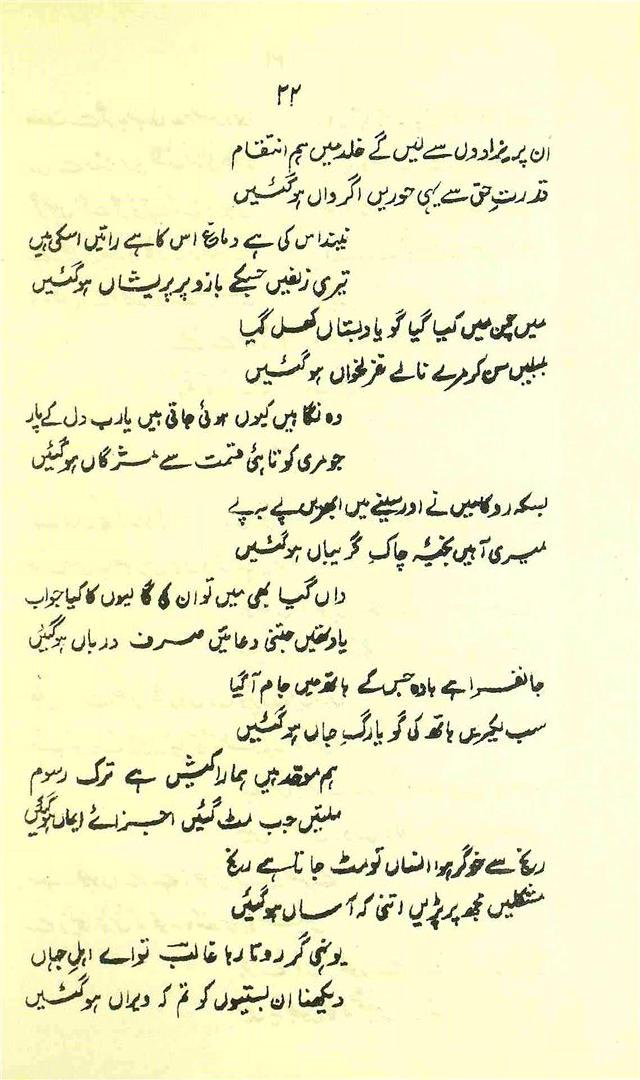 ۲۲
ان پریزادوں سے لیں گے خلد میں ہم انتقام
قدرتِ حق سے یہی حوریں اگر واں ہوگئیں
نیند اس کی ہے دماغ اس کا ہے راتیں اسکی ہیں
تیری زلفیں جسکے بازو پر پریشاں ہوگئیں
میں چمن میں کیا گیا گویا دبستاں کھل گیا
بلبلیں سن کر مرے نالے غزلخواں ہوگئیں
وہ نگاہیں کیوں ہوئی جاتی ہیں یارب دل کے پار
جو مری کوتاہئ قسمت سے مژگاں ہوگئیں
بسکہ روکا میں نے اور سینے میں ابھریں پے بہ پے
میری آہیں بخیۂ چاکِ گریباں ہوگئیں
واں گیا بھی میں تو ان کی گالیوں کا کیا جواب
یاد تھیں جتنی دعائیں صرف درباں ہوگئیں
جانفزا ہے بادہ جس کے ہاتھ میں جام آگیا
سب لکیریں ہاتھ کی گویا رگِ جاں ہوگئیں
ہم موحد ہیں ہمارا کیش ہے ترک رسوم
ملتیں جب مٹ گئیں اجزائے ایماں ہوگئیں
رنج سے خوگر ہوا انساں تو مٹ جاتا ہے رنج
مشکلیں مجھ پر پڑیں اتنی کہ آساں ہوگئیں
یونہی گر روتا رہا غالب تو اے اہلِ جہاں
دیکھنا ان بستیوں کو تم کہ ویراں ہوگئیں